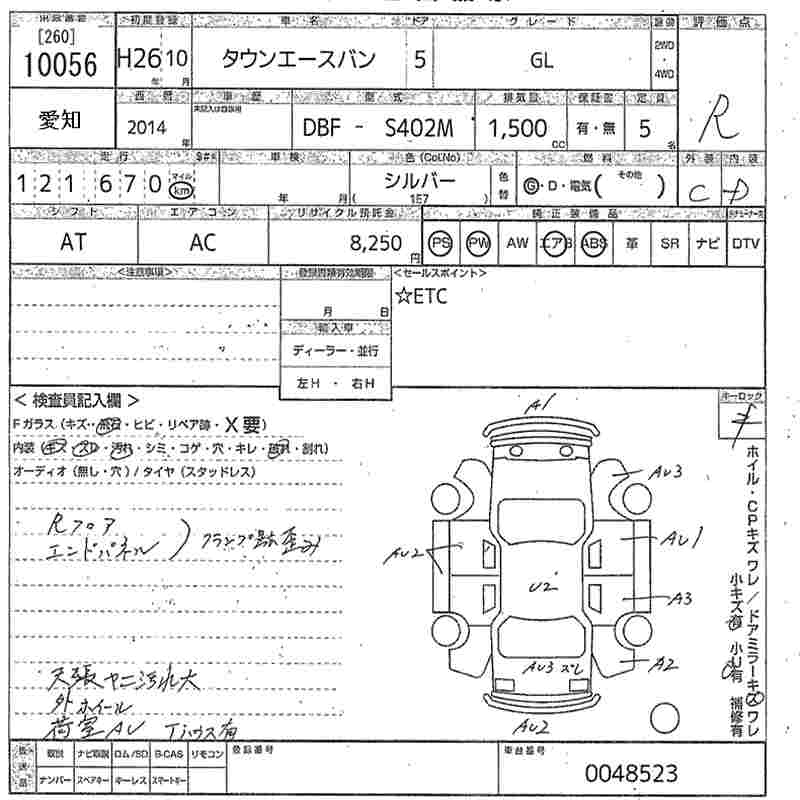 出品番号 初度登録 車名 ドア グレード 評価点
[260]
10056 H26 10 タウンエースバン 5 GL 2WD ・ 4WD R
年 月
愛知 西暦 車歴 型式 排気量 保証書 定員
2014 年 DBF - S402M 1,500 cc 有・無 5 名
走行 車検 色(Col.No) 燃料 外装 内装
121670 マイル km 年 月 シルバー 色替 G・D・電気( その他 ) C D
( 1E7 )
シフト エアコン リサイクル預託金 純正装備品
AT AC 8,250 円 PS PW AW エアB ABS 革 SR ナビ DTV
<注意事項> 登録書類有効期限 <セールスポイント>
月 日 ☆ETC
輸入車
ディーラー・並行
左H ・ 右H
< 検査員記入欄 > キーロック
Fガラス(キズ・飛石・ヒビ・リペア跡・X要)
内装(キズ・スレ・汚れ・シミ・コゲ・穴・キレ・破れ・割れ)
オーディオ(無し・穴)/タイヤ(スタッドレス)
Rフロア
エンドパネル ) クランプ跡歪み
天張ヤニ汚れ大
外ホイール
荷室AU Tハウス有
A1
AU3
AU2
AU1
U2
A3
AU3 ズレ
A2
AU2
ホイル・CPキズ ワレ/ドアミラーキズ ワレ
小キズ有 小U有 補修有
返送品 取説 ナビ取説 ロム/SD B-CAS リモコン 登録番号 車台番号
ナンバー スペアキー キーレス スマートキー 0048523